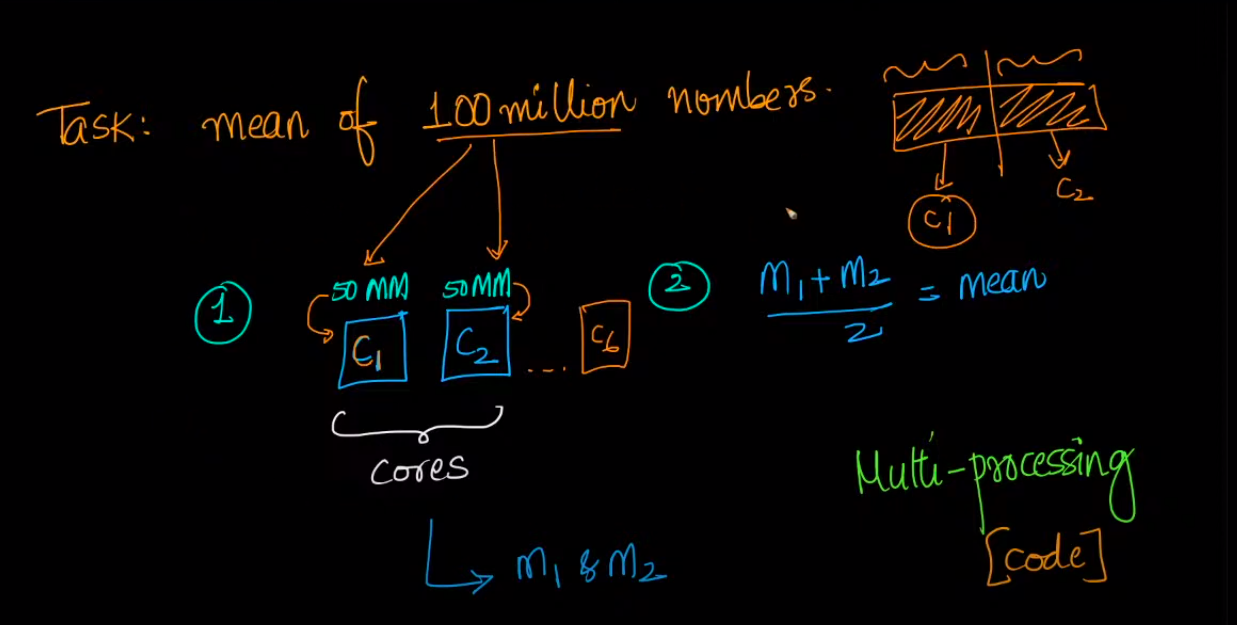 Task: mean of 100 million numbers.
C1
C2
1
50 MM 50 MM
C1 C2 .... C6
cores
m1 & m2
2
m1 + m2 = mean
2
Multi-processing
[code]